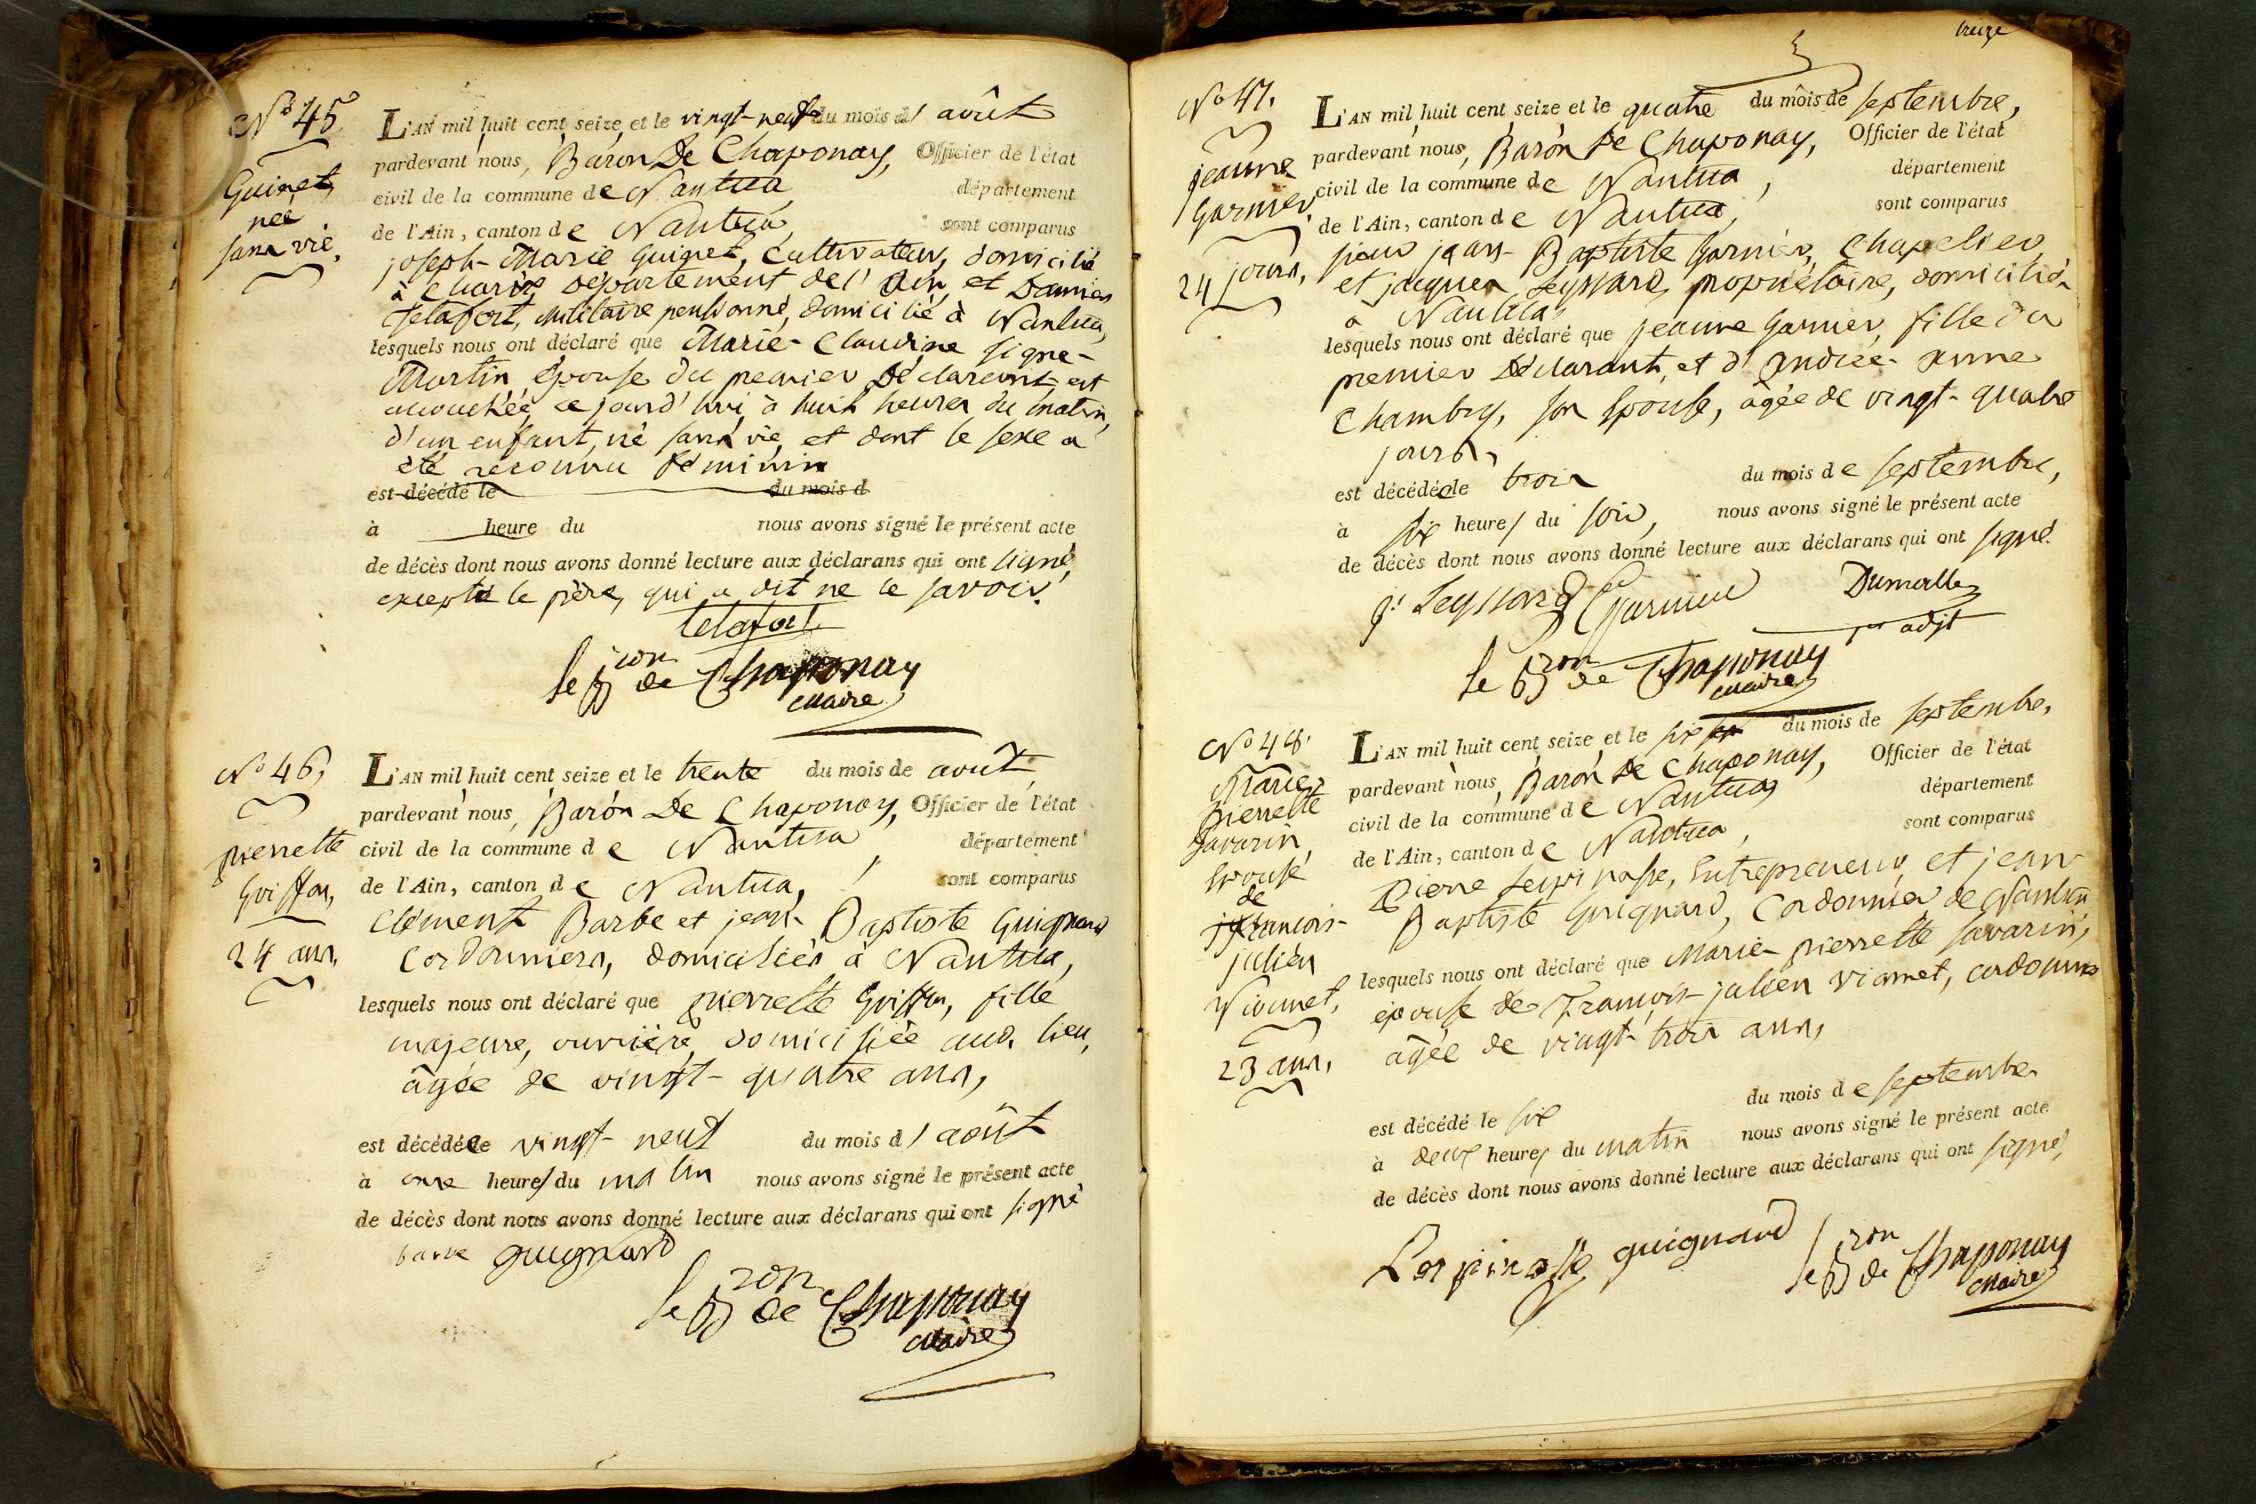 No 45.
Guinet,
née
sans vie.
L'AN mil huit cent seize et le vingt-neuf du mois d' août
pardevant nous, Baron De Chaponay, Officier de l'état
civil de la commune de Nantua département
de l'Ain, canton de Nantua, sont comparus
joseph-Marie Guinet, Cultivateur, domicilié
à Charix Département de l'Ain et Damien
Letafort, Militaire pensionné, domicilié à Nantua,
lesquels nous ont déclaré que Marie-Claudine
Martin, épouse du premier Déclarant est
accouchée, ce jourd'hui à huit heures du matin,
d'un enfant, né sans vie, et dont le sexe a
été reconnu féminin
est décédé le du mois d
à heure du nous avons signé le présent acte
de décès dont nous avons donné lecture aux déclarans qui ont signé,
excepté le père, qui a dit ne le savoir.
letafort
le Bron de Chaponay
Maire
No 46,
pierrette
Griffon,
24 ans,
L'AN mil huit cent seize et le trente du mois de août,
pardevant nous, Baron De Chaponay, Officier de l'état
civil de la commune de Nantua, département
de l'Ain, canton de Nantua, sont comparus
Clément Barbe et jean-Baptiste Guignard
Cordonniers, domiciliés à Nantua,
lesquels nous ont déclaré que pierrette Griffon, fille
majeure, ouvrière, domiciliée aud. lieu,
âgée de vingt-quatre ans,
est décédée le vingt-neuf du mois d' août
à onze heures du matin nous avons signé le présent acte
de décès dont nous avons donné lecture aux déclarans qui ont signé
barbe guignard
le Bron de Chaponay
Maire
treize
No 47.
jeanne
Garnier,
24 jours,
L'AN mil huit cent seize et le quatre du mois de septembre,
pardevant nous, Baron De Chaponay, Officier de l'état
civil de la commune de Nantua, département
de l'Ain, canton de Nantua, sont comparus
sieur jean-Baptiste Garnier, Chapelier
et jacques Leyssard, propriétaire, domiciliés
à Nantua
lesquels nous ont déclaré que jeanne Garnier, fille du
premier Déclarant, et d'Andrée-Anne
Chambry, son Epouse, âgée de vingt-quatre
jours,
est décédée le trois du mois de septembre,
à six heures du soir, nous avons signé le présent acte
de décès dont nous avons donné lecture aux déclarans qui ont signé.
jn Leyssard Garnier Dumolle
1er adjt
le Bron de Chaponay
Maire
No 48.
Marie-
pierrette
Savarin,
Epouse
de
françois-
julien
Vionnet,
23 ans,
L'AN mil huit cent seize et le six du mois de septembre,
pardevant nous, Baron De Chaponay, Officier de l'état
civil de la commune de Nantua département
de l'Ain, canton de Nantua, sont comparus
Pierre Lespinasse, Entrepreneur, et jean-
Baptiste Guignard, Cordonnier de Nantua
lesquels nous ont déclaré que Marie-pierrette Savarin,
épouse de François-julien Vionnet, cordonnier
âgée de vingt-trois ans,
est décédé le six du mois de septembre
à deux heures du matin nous avons signé le présent acte
de décès dont nous avons donné lecture aux déclarans qui ont signé,
Lespinasse guignard
le Bron de Chaponay
Maire